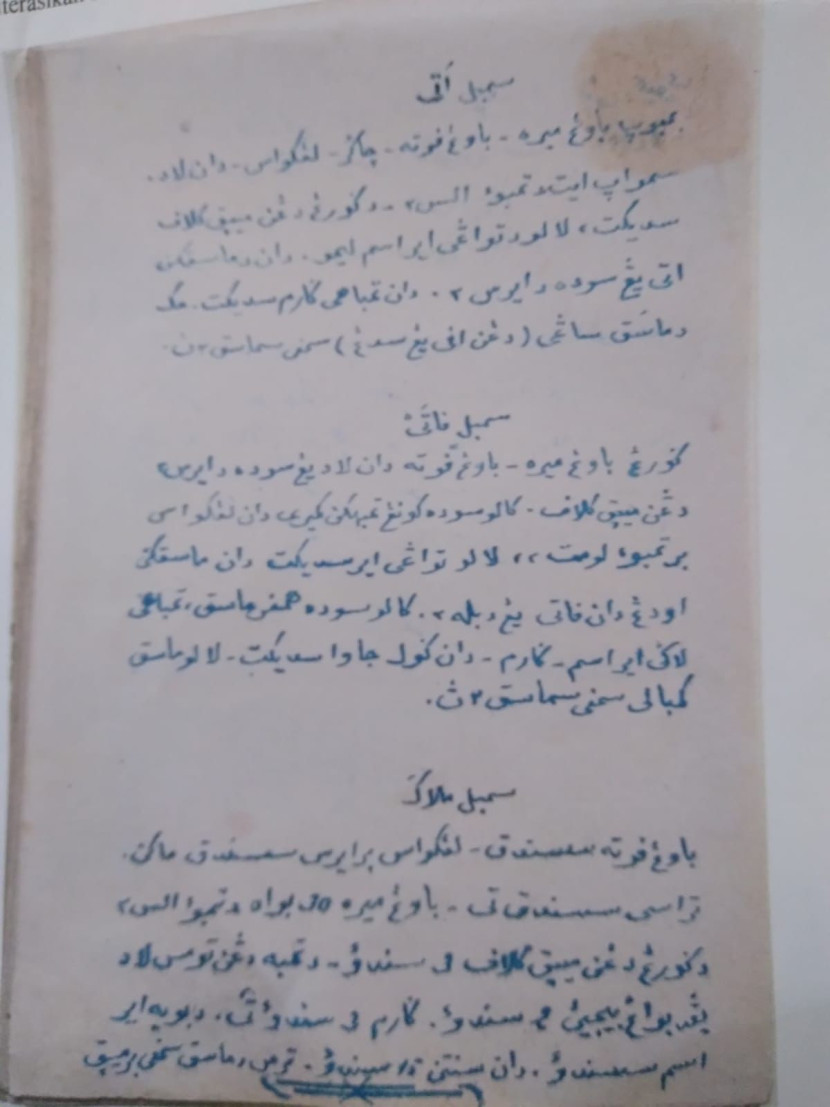 iterasikan
سمبل أتى
بمبوڽ باوڠ ميره - باوڠ ڤوته - چاڬر - لڠكواس - دان لاد.
سموا ايت دتمبوء الس٢ - دݢوريڠ دڠن ميڽق كلاڤ
سديكت، لالو دتواڠي اير اسم ليمو. دان دماسقكن
اتى يڠ سوده دايرس٢. دان تمباهي ݢارم سديكت. مك
دماسق (دڠن اڤى يڠ سدڠ) سمڤى سماسق٢ڽ.
سمبل ڤاتى
ݢوريڠ باوڠ ميره - باوڠ ڤوته دان لاد يڠ سوده دايرس٢
دڠن ميڽق كلاڤ. كالو سوده كونيڠ تمبهكن كميرى دان لڠكواس
برتمبوء لومت،، لالو تواڠي اير سديكت دان ماسقكن
اودڠ دان ڤاتى يڠ دبله٢. كالو سوده همڤير ماسق، تمباهى
لاݢى اير اسم - ݢارم - دان ݢول جاوا سديكت - لالو ماسق
كمبالى سمڤى سماسق٢ڽ.
سمبل ملاك
باوڠ ڤوته سسندوق - لڠكواس برايرس سسندوق ماكن.
تراسى سسندوق تى - باوڠ ميره 30 بواه دتمبوا الس٢
دݢوريڠ دڠن ميڽق كلاڤ سندوق - دتمبه دڠن لاد
يڠ دبواڠ بيجيڽ سندوق. ݢارم سندوق تى. دبوبه اير
اسم سسندوق. دان سنتن سندوق. دماسق سمڤى برميڽق